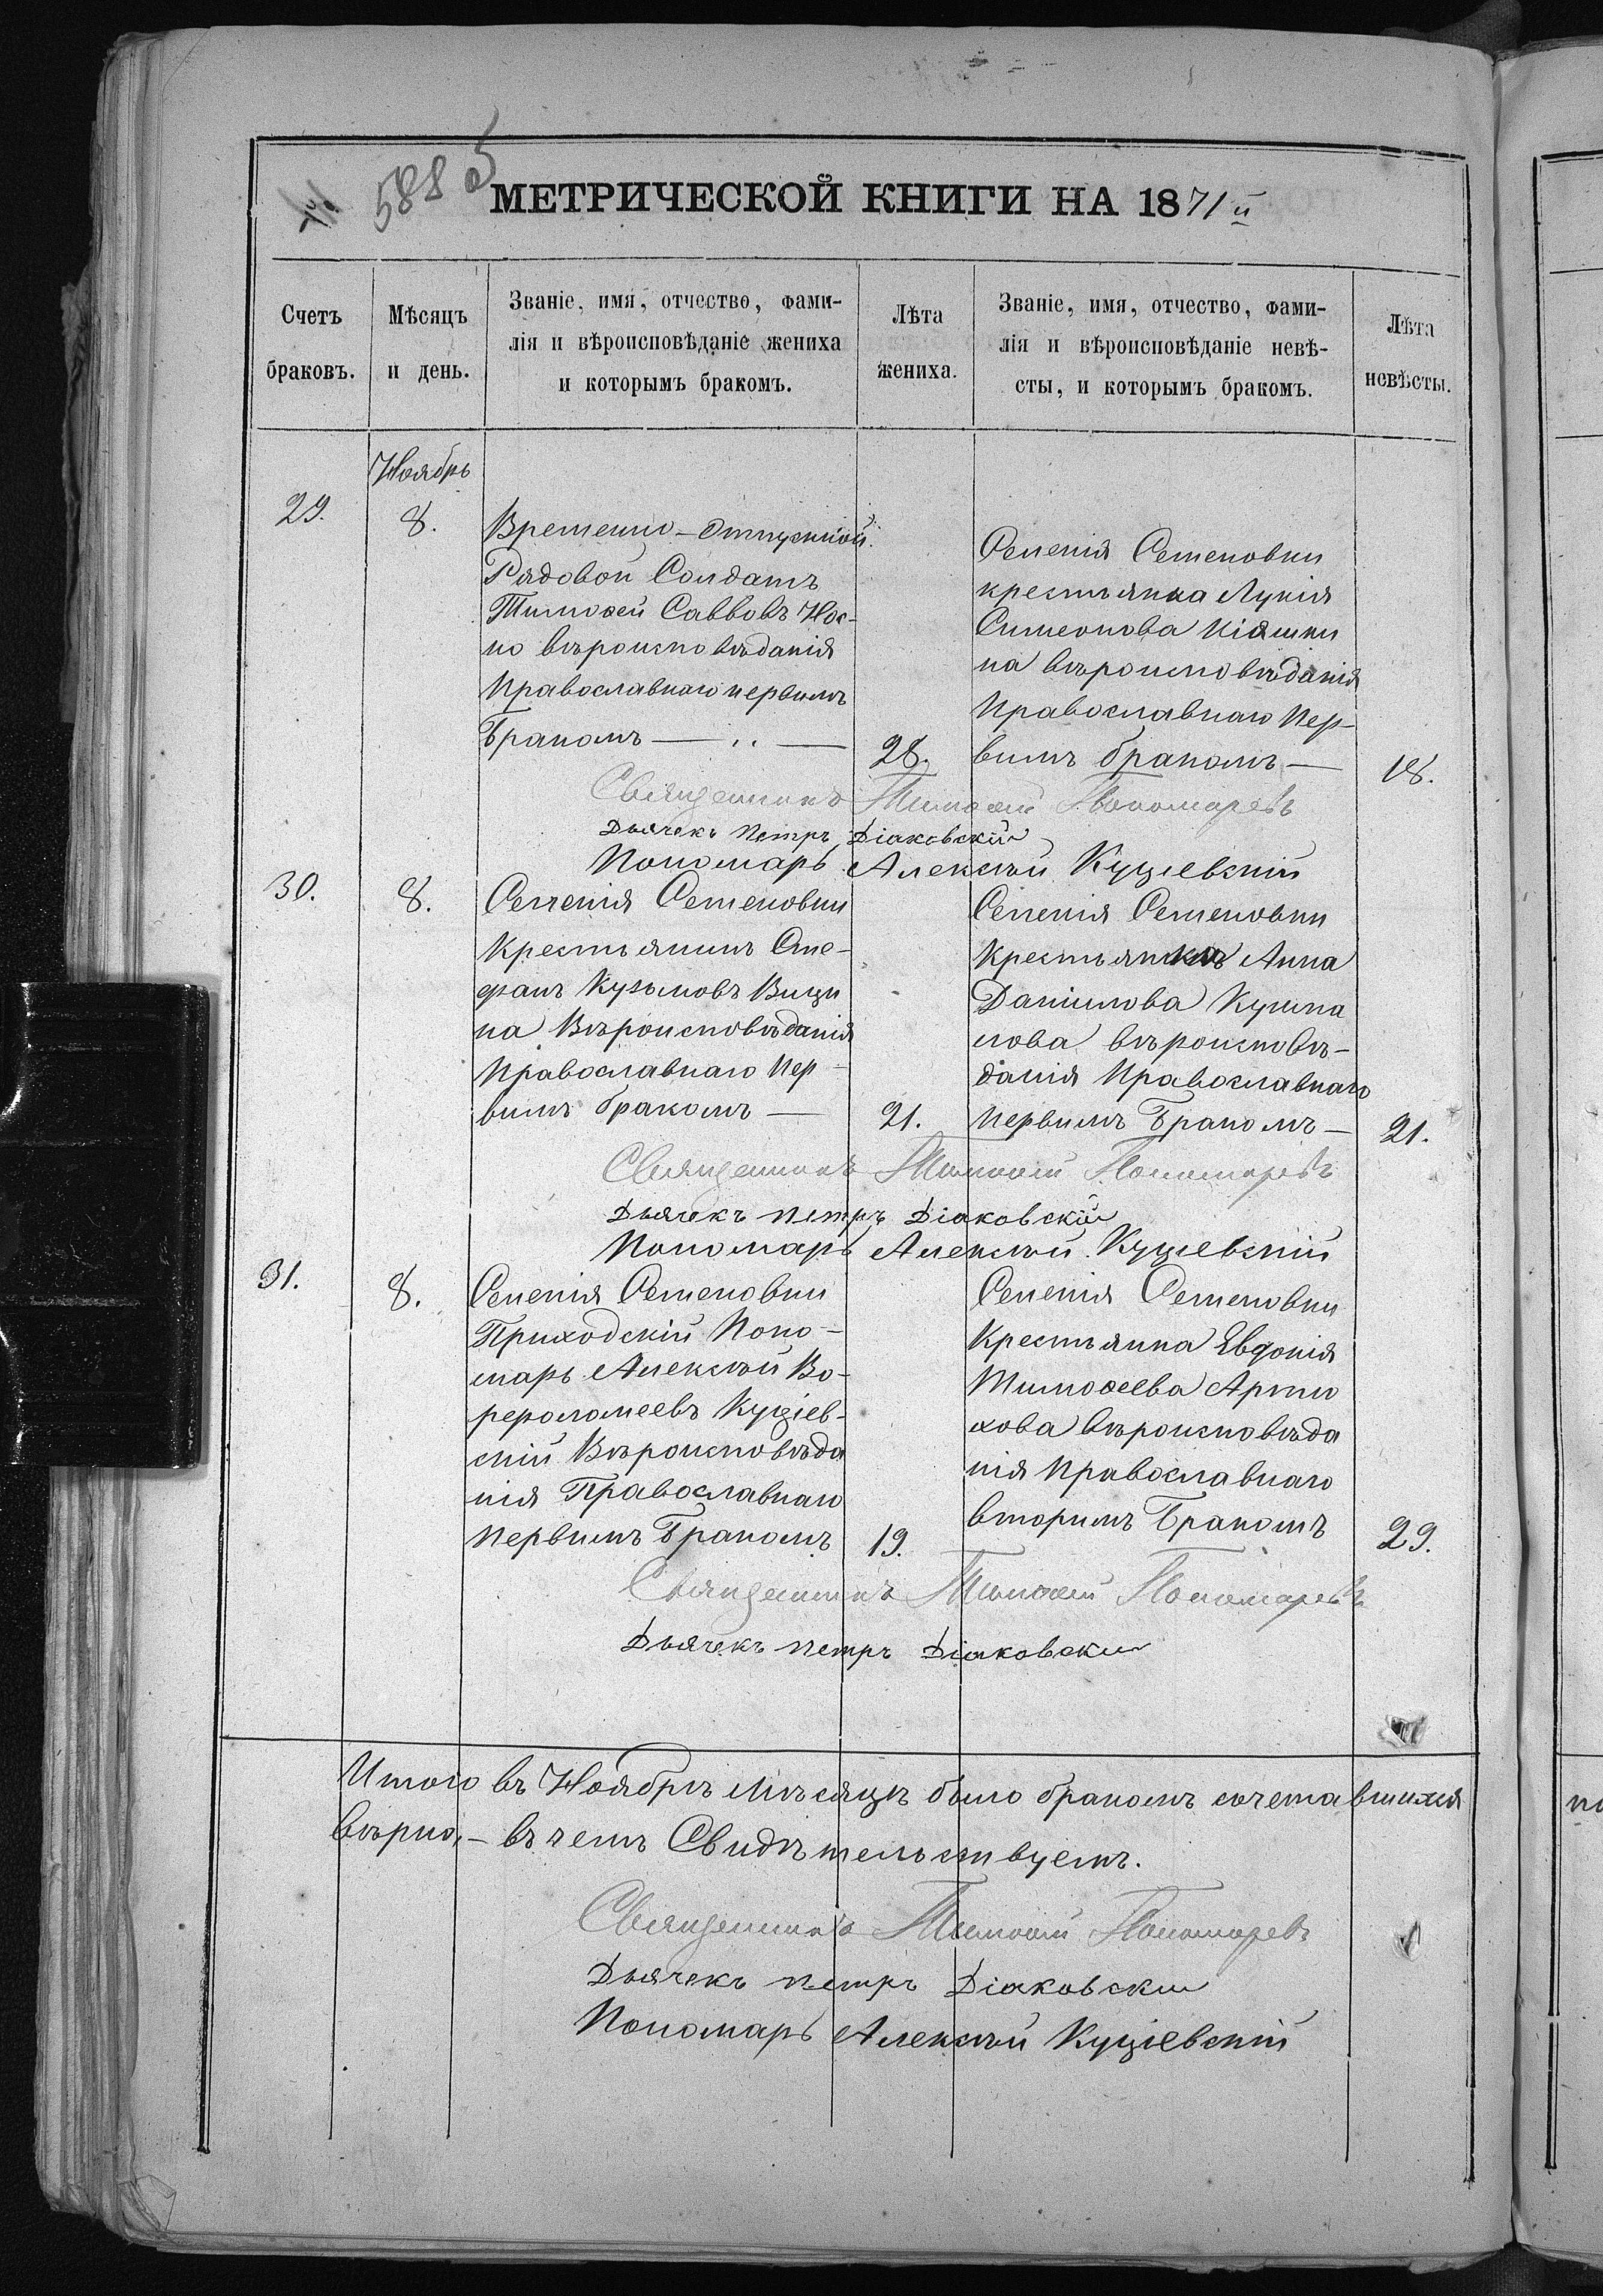 588 об
МЕТРИЧЕСКОЙ КНИГИ НА 1871й
Счетъ браковъ.
Мѣсяцъ и день.
Званіе, имя, отчество, фами-
лія и вѣроисповѣданіе жениха
и которымъ бракомъ.
Лѣта жениха.
Званіе, имя, отчество, фами-
лія и вѣроисповѣданіе невѣ-
сты, и которымъ бракомъ.
Лѣта невѣсты.
Ноябрь
29.
8.
Временно-Отпускной
Рядовой Солдатъ
Тимоѳей Саввовъ Нос-
ко вѣроисповѣданія
Православнаго первимъ
Бракомъ — „ —
28.
Селенія Семеновки
крестьянка Лукія
Симеонова Кіяшки
на вѣроисповѣданія
Православнаго Пер-
вимъ бракомъ —
18.
Священникъ Тимоѳей Пономаревъ
Дьячекъ Петръ Діаковскій
Пономарь Алексѣй Куціевскій
30.
8.
Селенія Семеновки
Крестьянинъ Сте-
фанъ Кузьмовъ Вищи
на Вѣроисповѣданія
Православнаго Пер-
вимъ бракомъ —
21.
Селенія Семеновки
Крестьянка Анна
Даніилова Кушна
лова вѣроисповѣ-
данія Православнаго
Первимъ Бракомъ —
21.
Священникъ Тимоѳей Пономаревъ
Дьячекъ Петръ Діаковскій
Пономарь Алексѣй Куціевскій
31.
8.
Селенія Семеновки
Приходскій Поно-
марь Алексѣй Во-
рѳоломеевъ Куціев-
скій Вѣроисповѣда
нія Православнаго
Первимъ Бракомъ
19.
Селенія Семеновки
Крестьянка Евдокія
Тимоѳеева Артю
хова вѣроисповѣда
нія Православнаго
вторимъ Бракомъ
29.
Священникъ Тимоѳей Пономаревъ
Дьячекъ Петръ Діаковскій
Итого въ Ноябрѣ Мѣсяцѣ было бракомъ сочетавшихся
вѣрно, – въ чемъ Свидѣтельствуемъ.
Священникъ Тимоѳей Пономаревъ
Дьячекъ Петръ Діаковскій
Пономарь Алексѣй Куціевскій